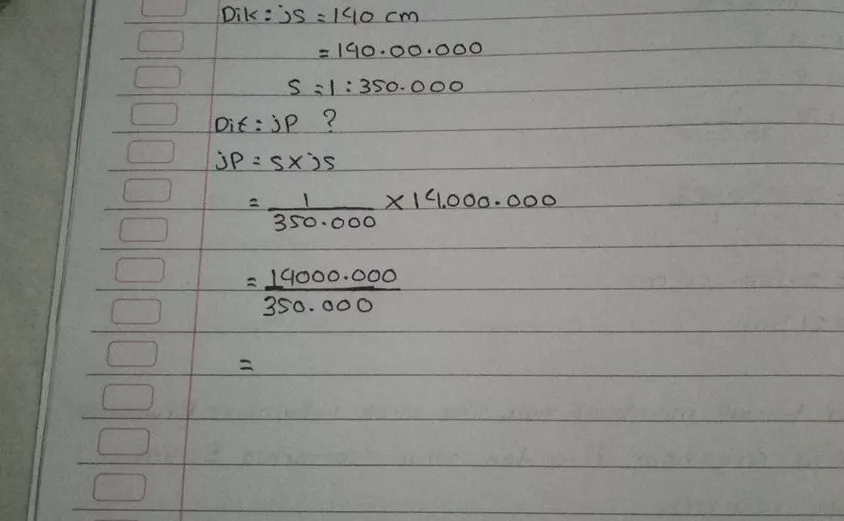 Dik : js = 140 cm
= 140.00.000
S = 1 : 350.000
Dit : jP ?
jP = s x js
= 1/350.000 x 14.000.000
= 14000.000/350.000
=